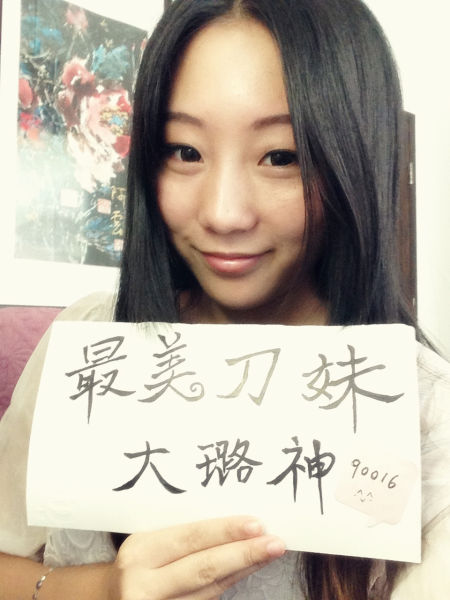 最美刀妹
大璐神
90016
^_^